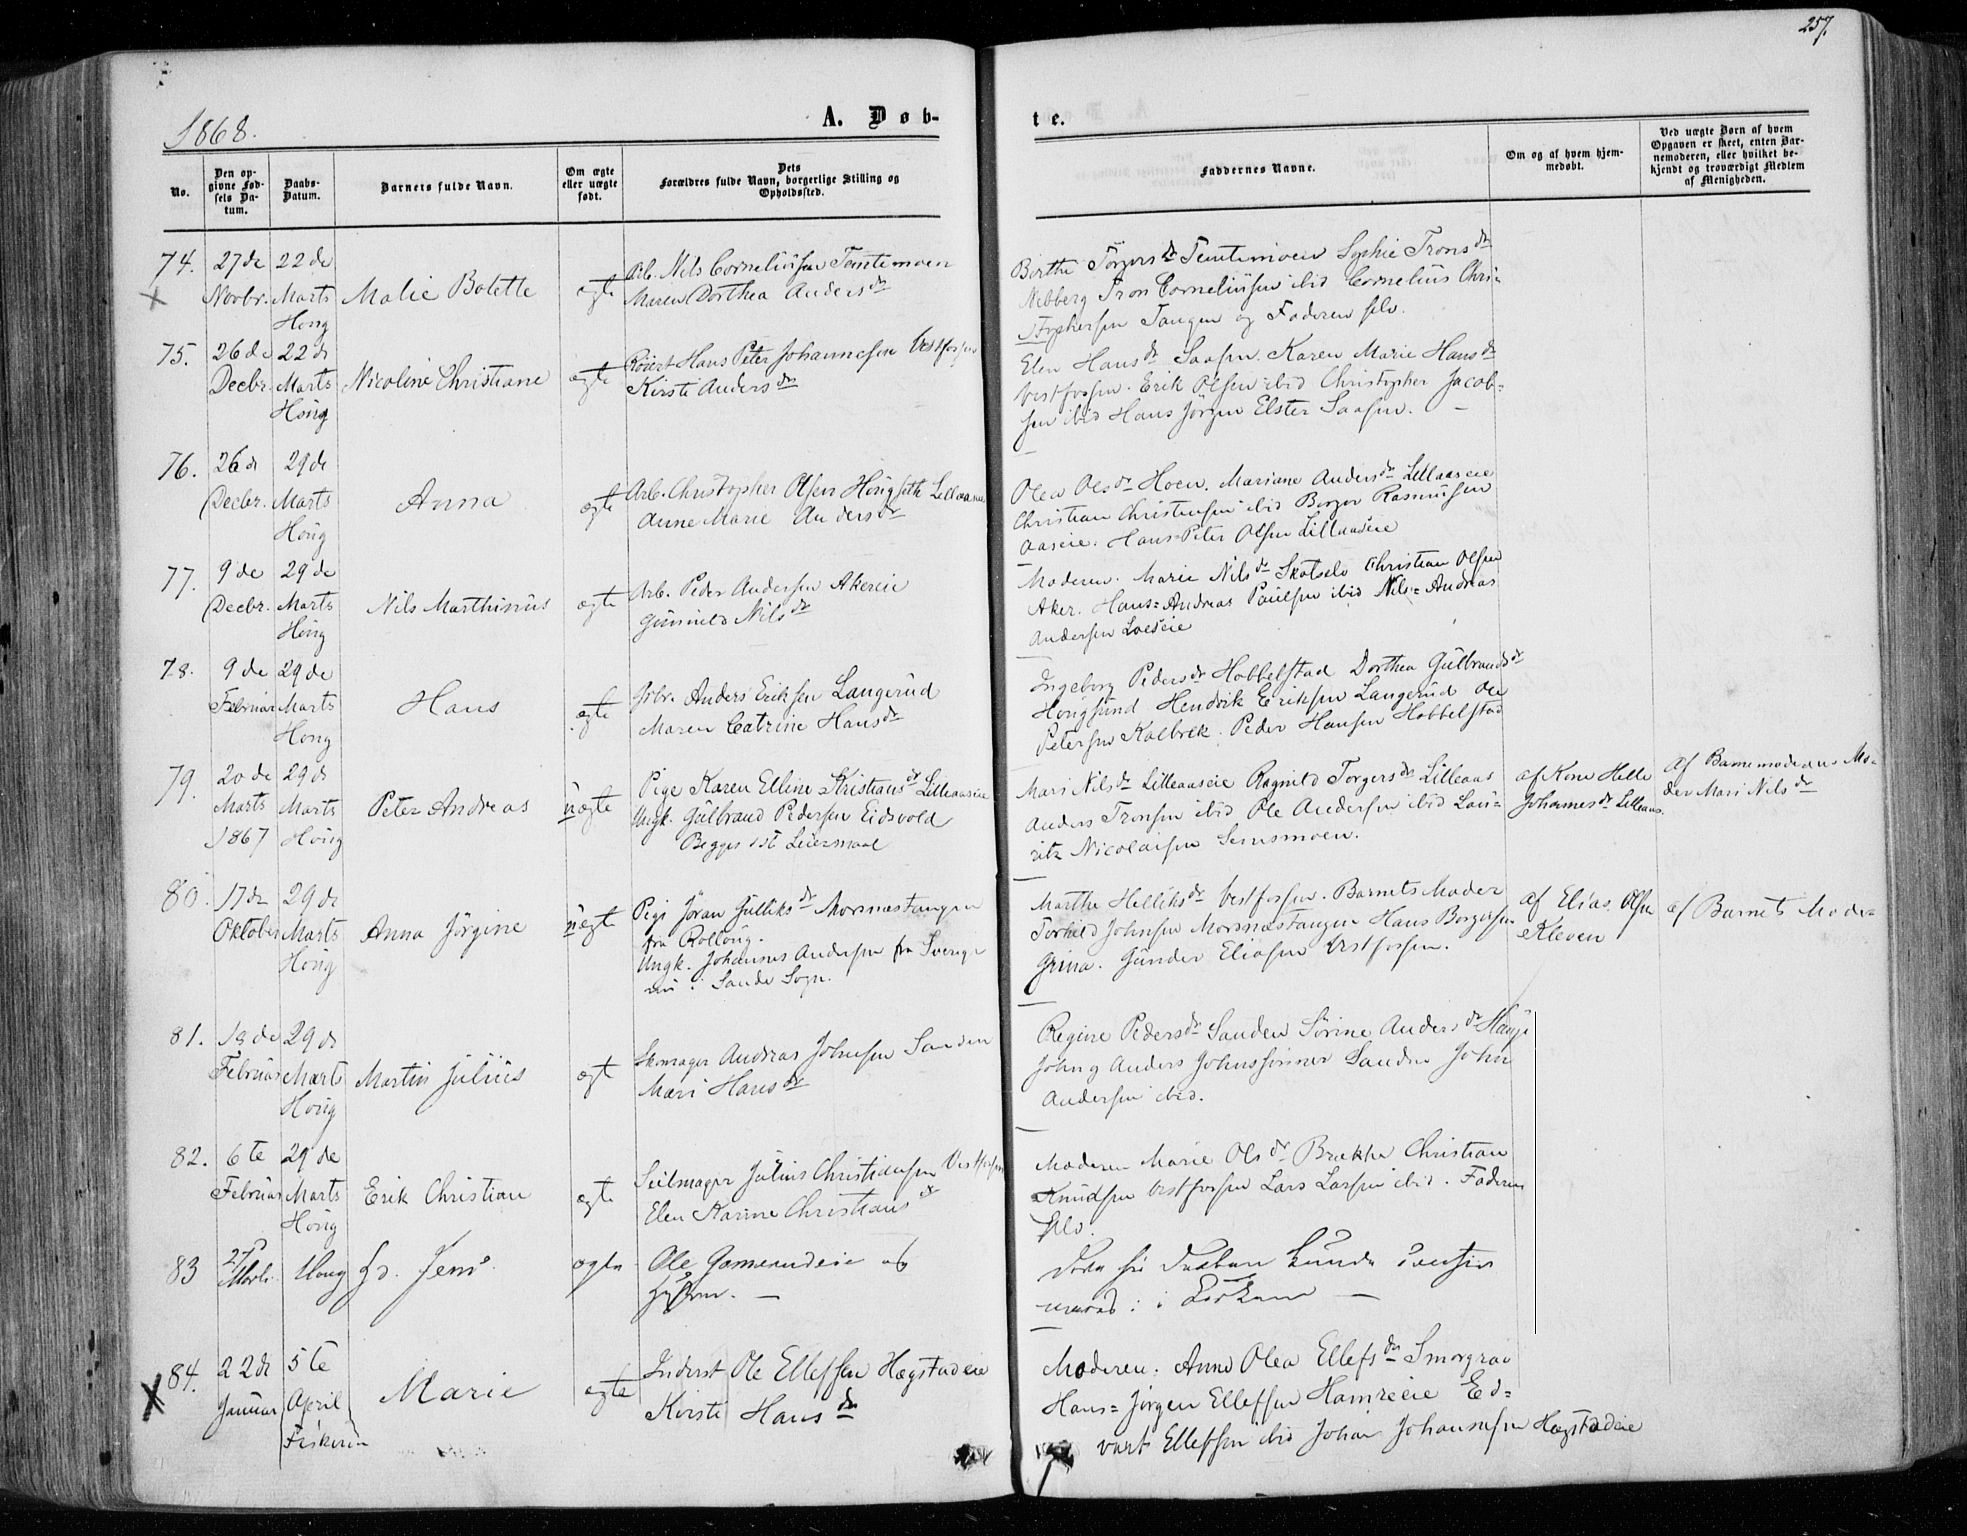 257.
1868.
A. Døb-
te.
No.
Den op-
givne Fød-
sels Da-
tum.
Daabs-
Datum.
Barnets fulde Navn.
Om ægte
eller uægte
født.
Dets
Forældres fulde Navn, borgerlige Stilling og
Opholdssted.
Faddernes Navne.
Om og af hvem hjem-
medøbt.
Ved uægte Børn af hvem
Opgaven er skeet, enten Bar-
nemoderen, eller hvilket be-
kjendt og troværdigt Medlem
af Menigheden.
74.
27de
Novbr.
22de
Marts
Houg
Malie Bolette
ægte
Arb. Nils Corneliusen Temtemoen
Maren Dorthea Andersdr
Berthe Torgersdr Temtemoen Sophie Tronsdr
Nebberg Tron Corneliusen ibid Cornelius Chri-
stophersen Tangen og Faderen selv.
75.
26de
Decbr.
22de
Marts
Houg
Nicoline Christiane
ægte
Hans Peter Johannesen Vestfossen
Kirsti Andersdr
Elen Hansdr Saasen. Karen Marie Hansdr
Vestfossen. Erik Olsen ibid Christopher Jacob-
sen ibid Hans Jörgen Elster Saasen. -
76.
26de
Decbr.
29de
Marts
Houg
Anna
ægte
Arb. Christopher Olsen Hougseth Lillaaseie
Anne Marie Andersdr
Olea Olsdr Hoen. Mariane Andersdr Lillaaseie
Christian Christensen ibid Borger Rasmusen
aaseie. Hans Peter Olsen Lillaaseie
77.
9de
Decbr.
29de
Marts
Houg
Nils Marthinius
ægte
Arb. Peder Andersen Akereie
Gunnild Nilsdr
Moderen. Marie Nilsdr Skotselv Christian Olsen
Aker. Hans=Andreas Paulsen ibid Nils=Andreas
Andersen Loeseie
78.
9de
Februar
29de
Marts
Houg
Hans
ægte
Gbr. Anders Eriksen Langerud
Maren Catrine Hansdr
Ingeborg Pedersdr Hobbelstad Dorthea Gulbrandsdr
Hougsund Hendrik Eriksen Langerud Ole
Petersen Kolbrek. Peder Hansen Hobbelstad
79.
20de
Marts
1867
29de
Marts
Houg
Peter Andreas
uægte
Pige Karen Elline Kristiansdr Lilleaaseie
Ungk. Gulbrand Pedersen Eidsvold
Begges 1st Leiermaal
Mari Nilsdr Lilleaaseie Ragnild Torgersdr Lilleaas
Anders Tronsen ibid Ole Andersen ibid Lau-
ritz Nicolaisen Semsmoen.
af Kone Helle
Johannesdr Lilleaas.
Af Barnemoderens Mo-
der Mari Nilsdr
80.
17de
Oktober
29de
Marts
Houg
Anna Jörgine
uægte
Pige Jöran Gulliksdr Morsnæstangen
fra Rolloug.
Ungk. Johannes Andersen fra Sverige
nu i Sande Sogn.
Marthe Helliksdr Vestfossen. Barnets Moder
Torkild Johnsen Morsnæstangen Hans Borgersen
Grina. Gunder Eliasen Vestfossen.
af Elias Olsen
Kleven
af Barnets Moder
81.
18de
Februar
29de
Marts
Houg
Martin Julius
ægt
Skomager Andreas Johnsen Sanden
Mari Hansdr
Regine Pedersdr Sanden Sörine Andersdr
John g Anders Johnssönner Sanden John
Andersen ibid.
82.
6te
Februar
29de
Marts
Houg
Erik Christian
ægte
Seilmager Julius Christiansen Vestfossen
Elen Karine Christiansdr
Moderen Marie Olsdr Brekke Christian
Knudsen Vestfossen Lars Larsen ibid. Faderen
selv.
83
Houg
Jens
ægte
Ole
84.
22de
Januar
5te
April
Fiskum
Marie
ægte
Inderst Ole Ellefsen Hægstadeie
Kirsti Hansdr
Moderen. Anne Olea Ellefsdr Smörgrav
Hans=Jörgen Ellefsen Hamreeie Ed=
vart Ellefsen ibid Johan Johannesen Hægstadeie